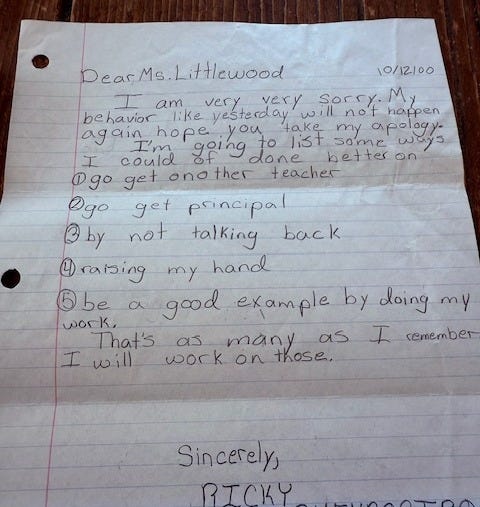 Dear Ms. Littlewood 10/12/00
I am very very sorry. My
behavior like yesterday will not happen
again hope you take my apology.
I'm going to list some ways
I could of done better on
① go get another teacher
② go get principal
③ by not talking back
④ raising my hand
⑤ be a good example by doing my
work.
That's as many as I remember
I will work on those.
Sincerely,
RICKY